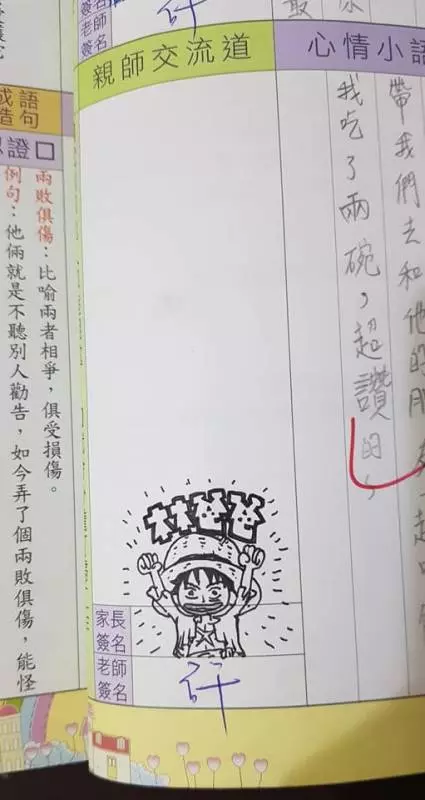 簽名
老師
簽名
心情小語
帶我們去和他的朋友一起吃
我吃了兩碗，超讚的，
親師交流道
林爸爸
家長
簽名
老師
簽名
許
成語
造句
認證口
兩敗俱傷：比喻兩者相爭，俱受損傷。
例句：他倆就是不聽別人勸告，如今弄了個兩敗俱傷，能怪